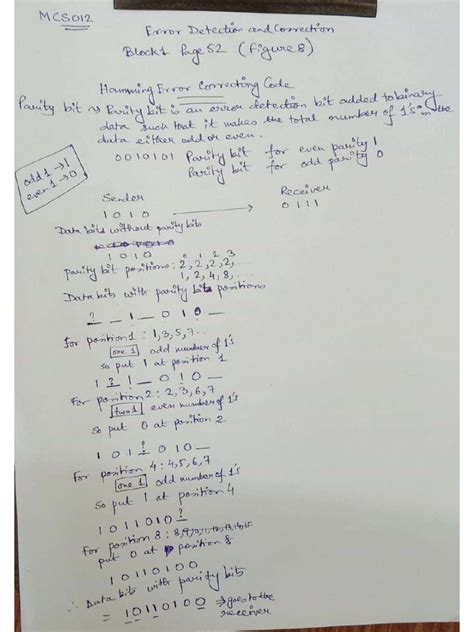 MCS012
Error Detection and Correction
Block1 Page 52 (figure 8)
Hamming Error Correcting Code
Parity bit ~> Parity bit is an error detection bit added to binary
data such that it makes the total number of 1's in the
data either odd or even.
0010101 Parity bit for even parity 1
Parity bit for odd parity 0
odd 1 → 1
even 1 → 0
Sender
Receiver
1010 → 0111
Data bits without parity bits
1010
parity bit positions: 2^0, 2^1, 2^2, 2^3, ...
1, 2, 4, 8, ...
Data bits with parity bit positions
? _ 1 _ 0 1 0 _
For position 1 : 1,3,5,7..
one 1 odd number of 1's
so put 1 at position 1
1 ? 1 _ 0 1 0 _
For position 2 : 2,3,6,7
two 1 even number of 1's
so put 0 at position 2
1 0 1 ? 0 1 0 _
For position 4 : 4,5,6,7
one 1 odd number of 1's
so put 1 at position 4
1 0 1 1 0 1 0 ?
For position 8 : 8,9,10,11,12,13,14,15
put 0 at position 8
1 0 1 1 0 1 0 0
∴ Data bits with parity bits
= 1 0 1 1 0 1 0 0 → goes to the
receiver